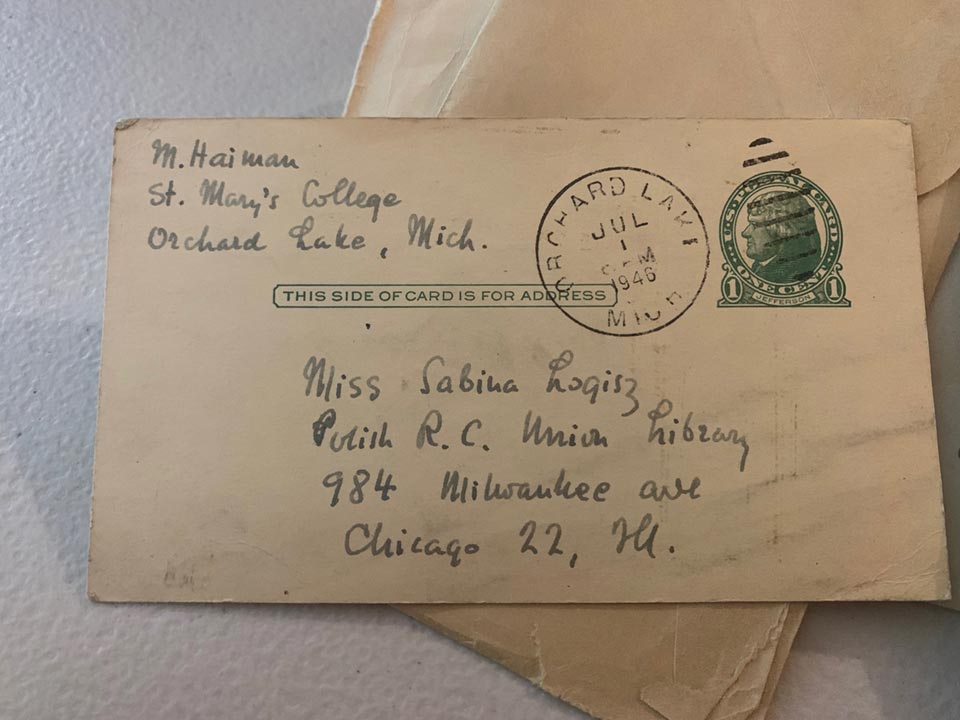 M. Haiman
St. Mary's College
Orchard Lake, Mich.
ORCHARD LAKE
JUL
1
PM
1946
MICH
U.S. POSTAL CARD
1 ONE CENT 1
JEFFERSON
THIS SIDE OF CARD IS FOR ADDRESS
Miss Sabina Logisz
Polish R. C. Union Library
984 Milwaukee ave
Chicago 22, Ill.